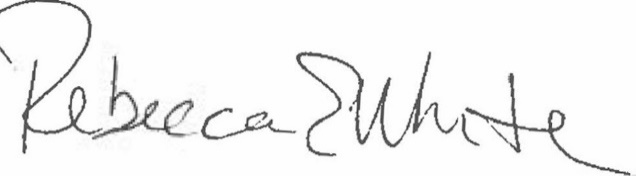 Rebecca E White